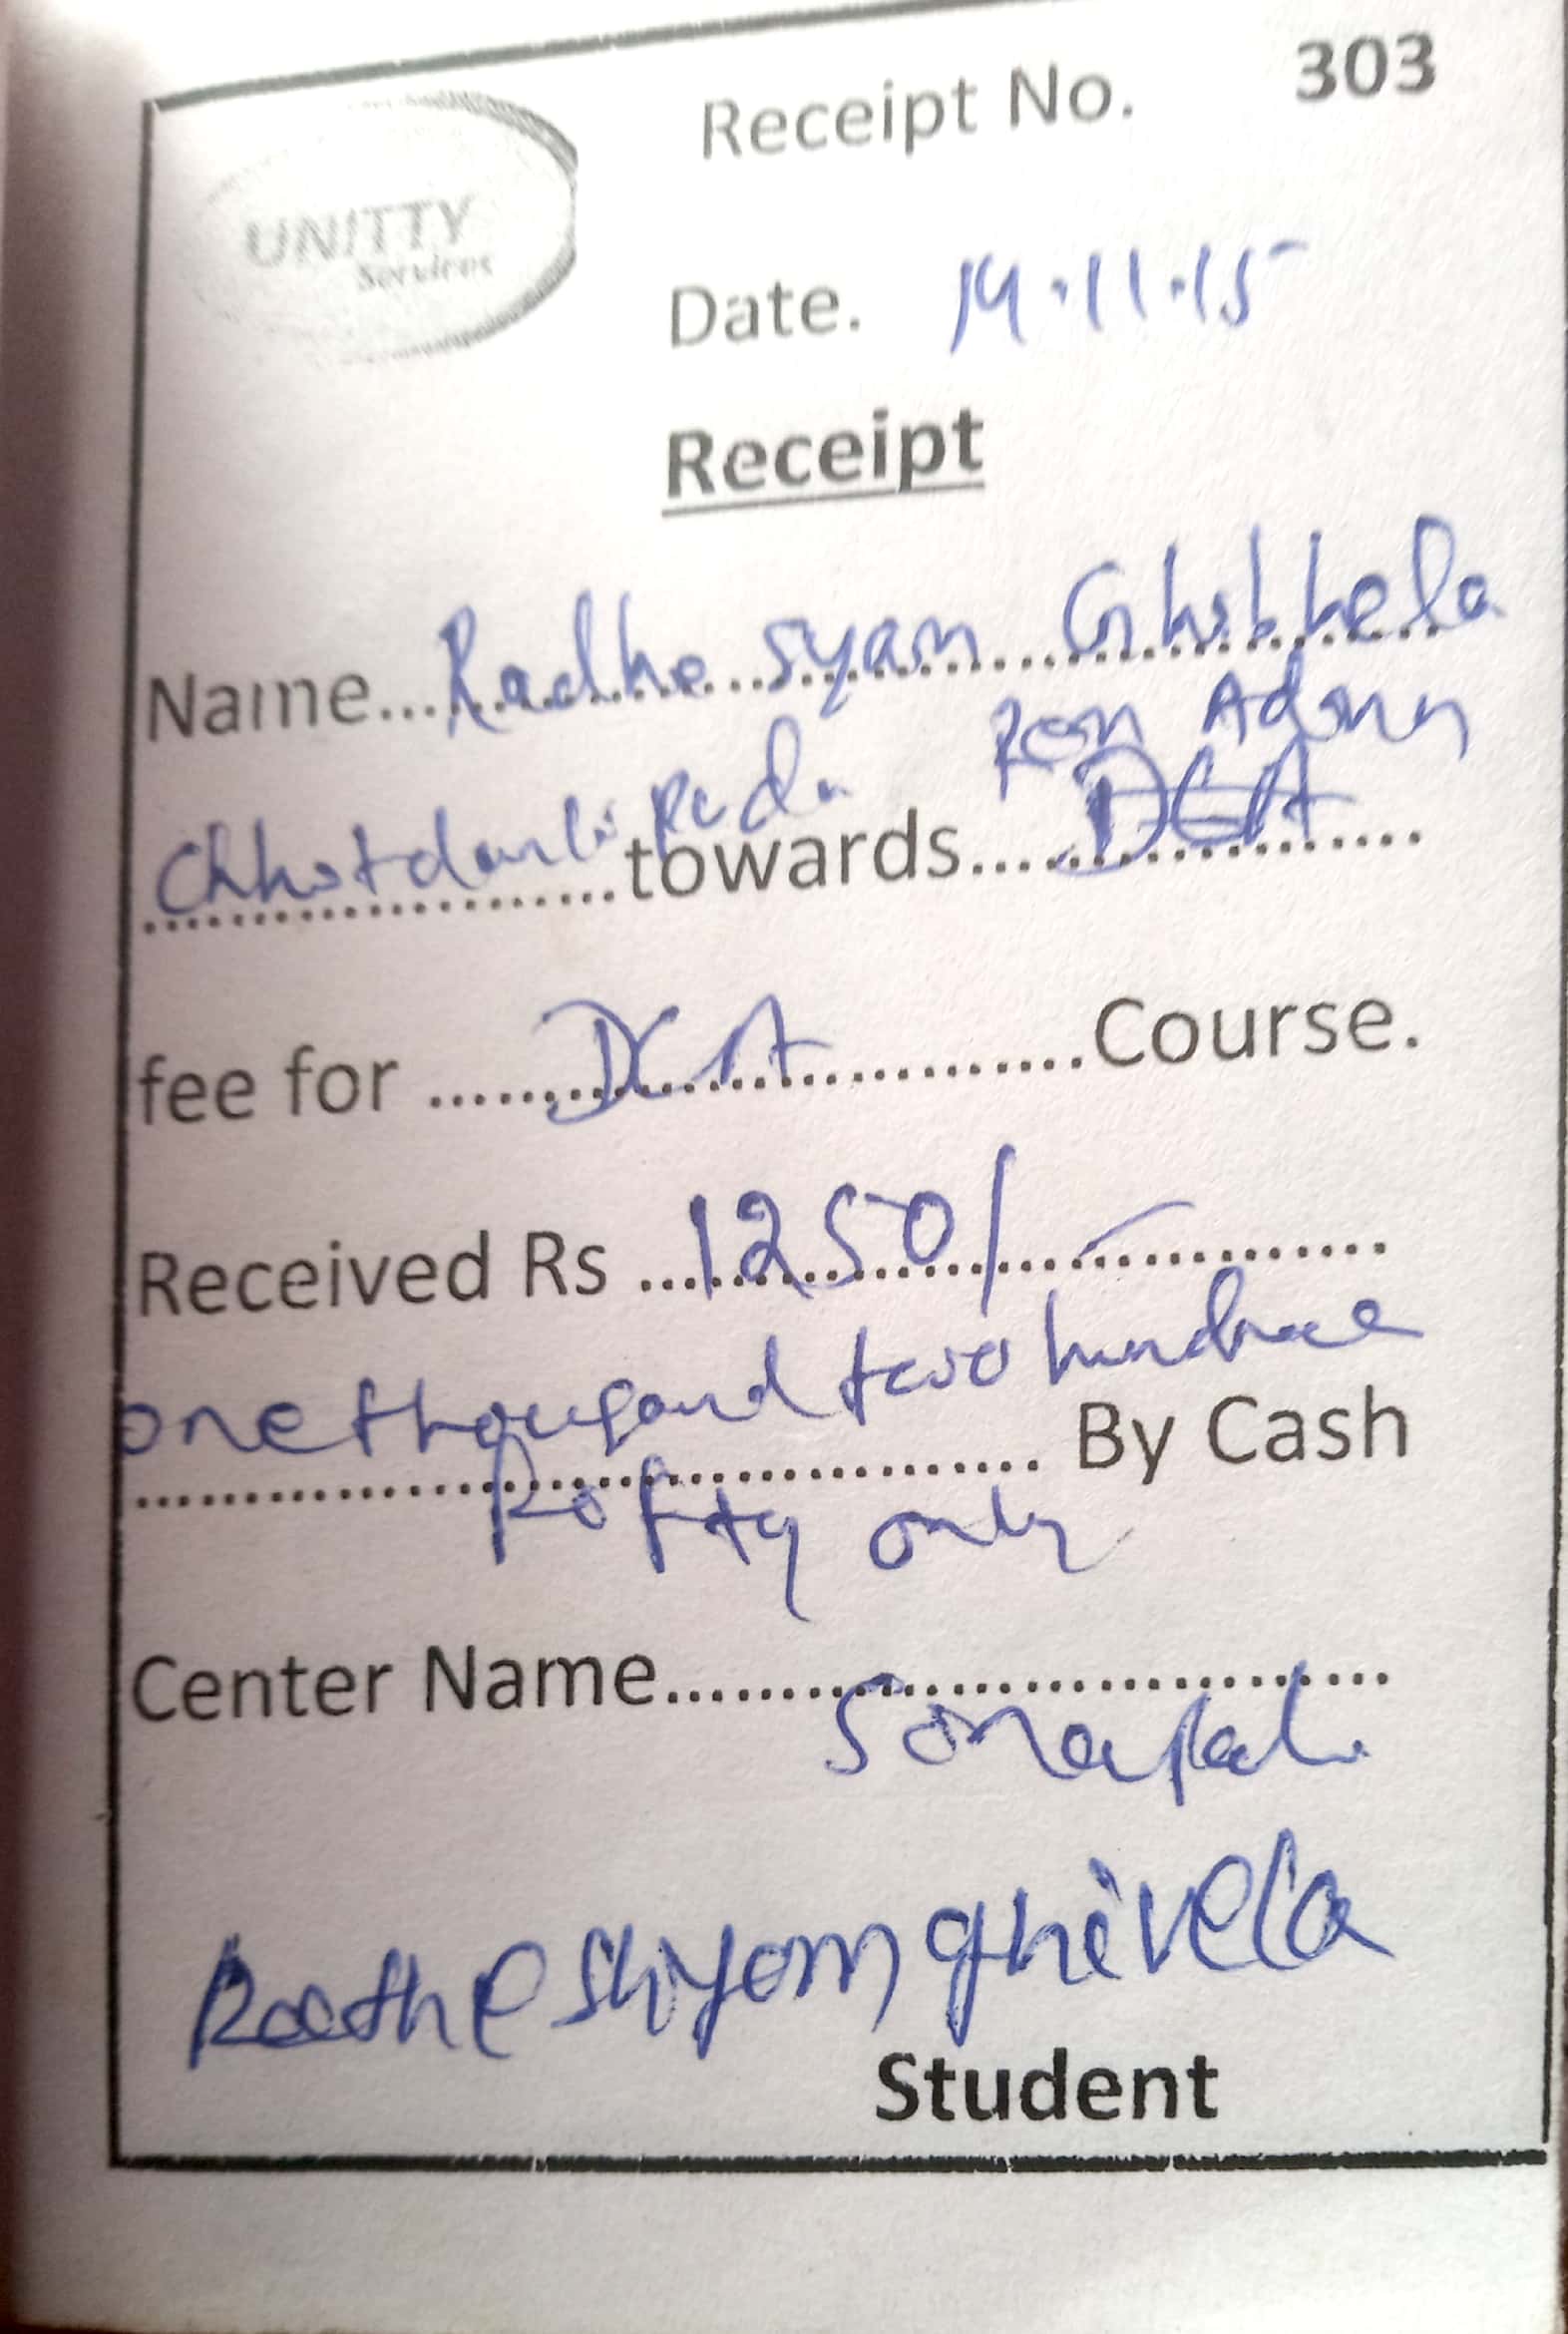 Receipt No. 303
UNITTY
Services
Date. 14.11.15
Receipt
Name...Radhe Syam Ghibhela
Chhotdanlipada towards.... DCA
fee for ......DCA............Course.
Received Rs ...1250/-............
one thousand two hundred
........................ By Cash
fifty only
Center Name........................
Sonapali
Radhe Shyam ghivela
Student